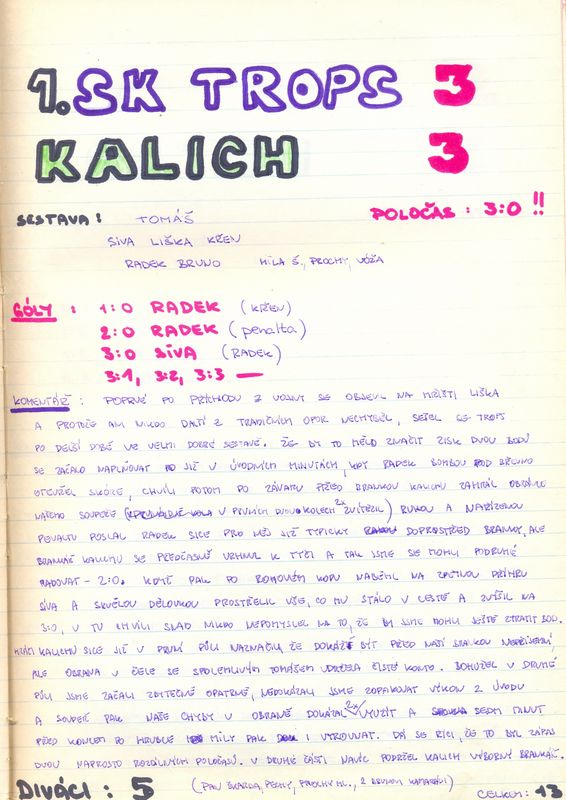 1. SK TROPS 3
KALICH 3
SESTAVA: TOMÁŠ POLOČAS: 3:0 !!
SÍVA LIŠKA KŘEN
RADEK BRUNO MÍLA Š., PROCHY, VÓŽA
GÓLY: 1:0 RADEK (KŘEN)
2:0 RADEK (penalta)
3:0 SÍVA (RADEK)
3:1, 3:2, 3:3 —
KOMENTÁŘ: POPRVÉ PO PŘÍCHODU Z VOJNY SE OBJEVIL NA HŘIŠTI LIŠKA
A PROTOŽE ANI NIKDO DALŠÍ Z TRADIČNÍCH OPOR NECHYBĚL, SEŠEL SE TROPS
PO DELŠÍ DOBĚ VE VELMI DOBRÉ SESTAVĚ. ŽE BY TO MĚLO ZNAČIT ZISK DVOU BODŮ
SE ZAČALO NAPLŇOVAT JIŽ V ÚVODNÍCH MINUTÁCH, KDY RADEK BOMBOU POD BŘEVNO
OTEVŘEL SKÓRE, CHVÍLI POTOM PO ZÁVARU PŘED BRANKOU KALICHU ZAHRÁL OBRÁNCE
NAŠEHO SOUPEŘE (V PRVNÍCH DVOU KOLECH 2x ZVÍTĚZIL) RUKOU A NAŘÍZENOU
PENALTU POSLAL RADEK SICE PRO NĚJ JIŽ TYPICKY DOPROSTŘED BRANKY, ALE
BRANKÁŘ KALICHU SE PŘEDČASNĚ VRHNUL K TYČI A TAK JSME SE MOHLI PODRUHÉ
RADOVAT - 2:0. KDYŽ PAK PO ROHOVÉM KOPU NABĚHL NA ZPĚTNOU PŘIHRU
SÍVA A SKVĚLOU DĚLOVKOU PROSTŘELIL VŠE, CO MU STÁLO V CESTĚ A ZVÝŠIL NA
3:0, V TU CHVÍLI SNAD NIKDO NEPOMYSLEL NA TO, ŽE BY JSME MOHLI JEŠTĚ ZTRATIT BOD.
HRÁČI KALICHU SICE JIŽ V PRVNÍ PŮLI NAZNAČILI, ŽE DOKÁŽÍ BÝT PŘED NAŠÍ BRANKOU NEPŘÍJEMNÍ
ALE OBRANA V ČELE SE SPOLEHLIVÝM TOMÁŠEM UDRŽELA ČISTÉ KONTO. BOHUŽEL V DRUHÉ
PŮLI JSME ZAČALI ZBYTEČNĚ OPATRNĚ, NEDOKÁZALI JSME ZOPAKOVAT VÝKON Z ÚVODU
A SOUPEŘ PAK NAŠE CHYBY V OBRANĚ DOKÁZAL 2x VYUŽÍT A SEDM MINUT
PŘED KONCEM PO HRUBCE MÍLY PAK I VYROVNAT. DÁ SE ŘÍCI, ŽE TO BYL ZÁPAS
DVOU NAPROSTO ROZDÍLNÝCH POLOČASŮ. V DRUHÉ ČÁSTI NAVÍC PODRŽEL KALICH VÝBORNÝ BRANKÁŘ.
DIVÁCI: 5 (PAN ŠKARDA, PECHY, PROCHY ML., 2 BRUNOVI KAMARÁDI) CELKEM: 13